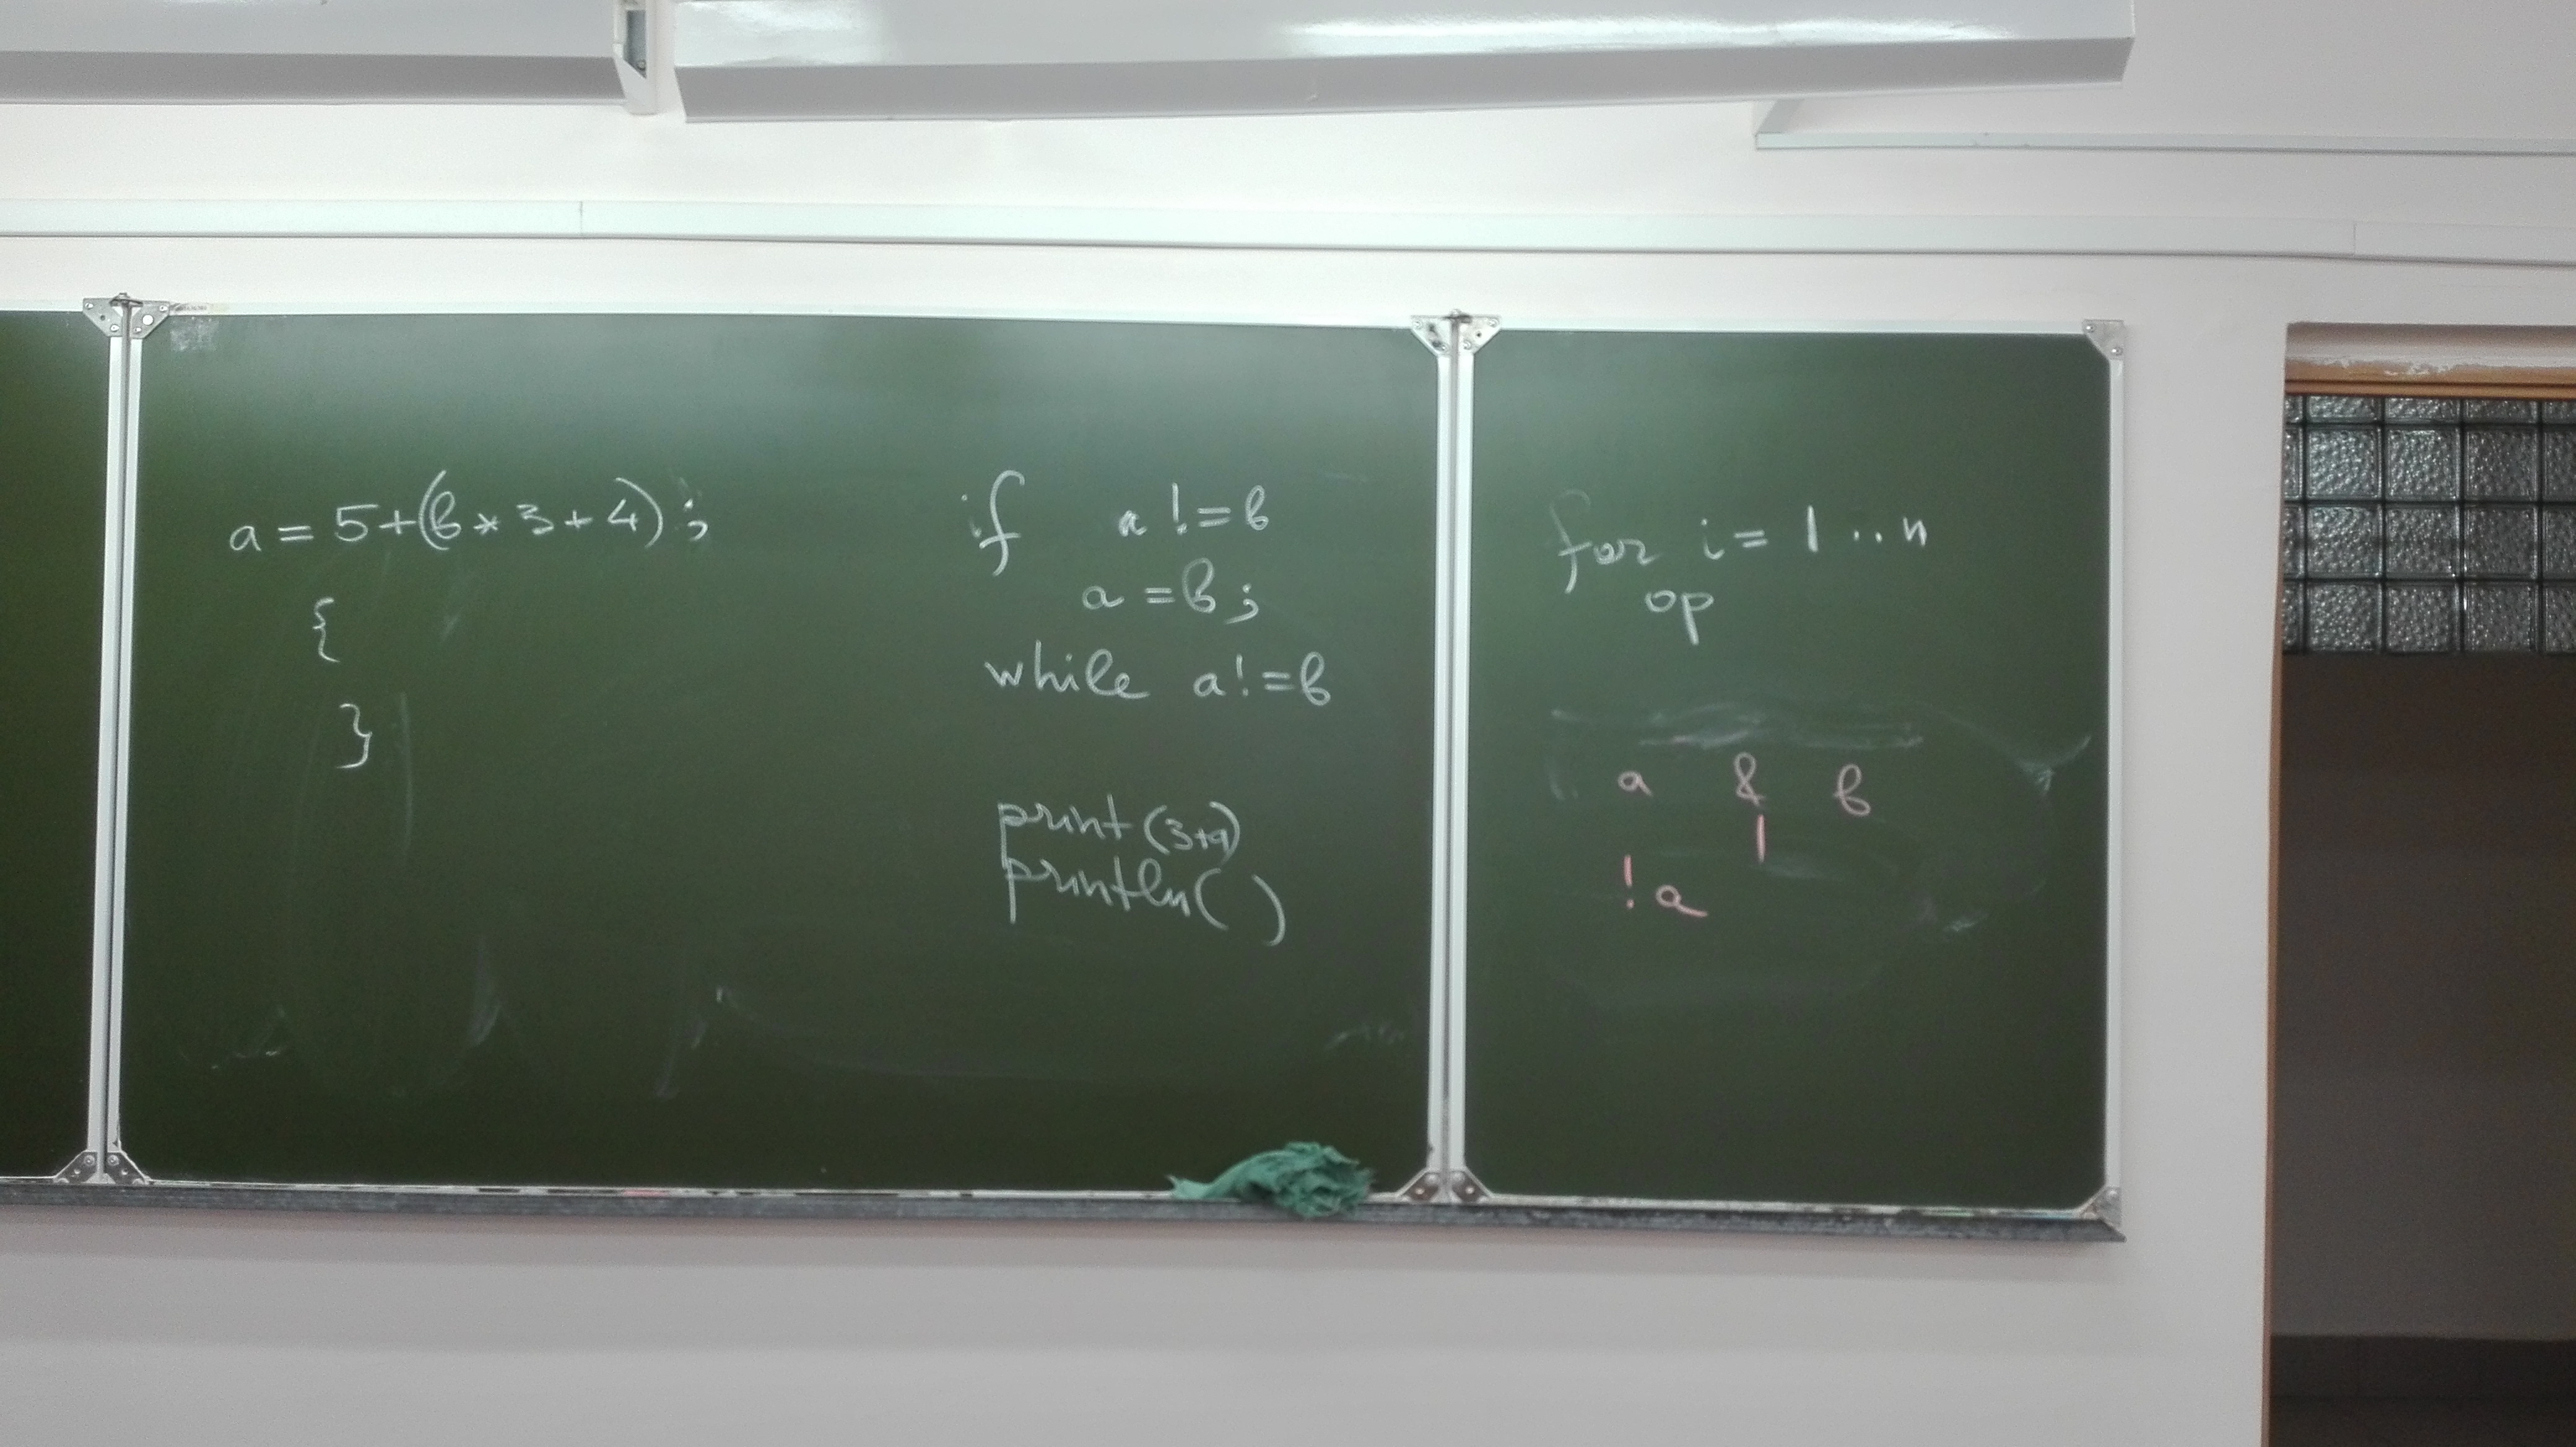 a = 5+(b * 3 + 4) ;
{
}
if a != b
a = b ;
while a != b
print (3+a)
println( )
for i = 1 .. n
op
a & b
|
! a